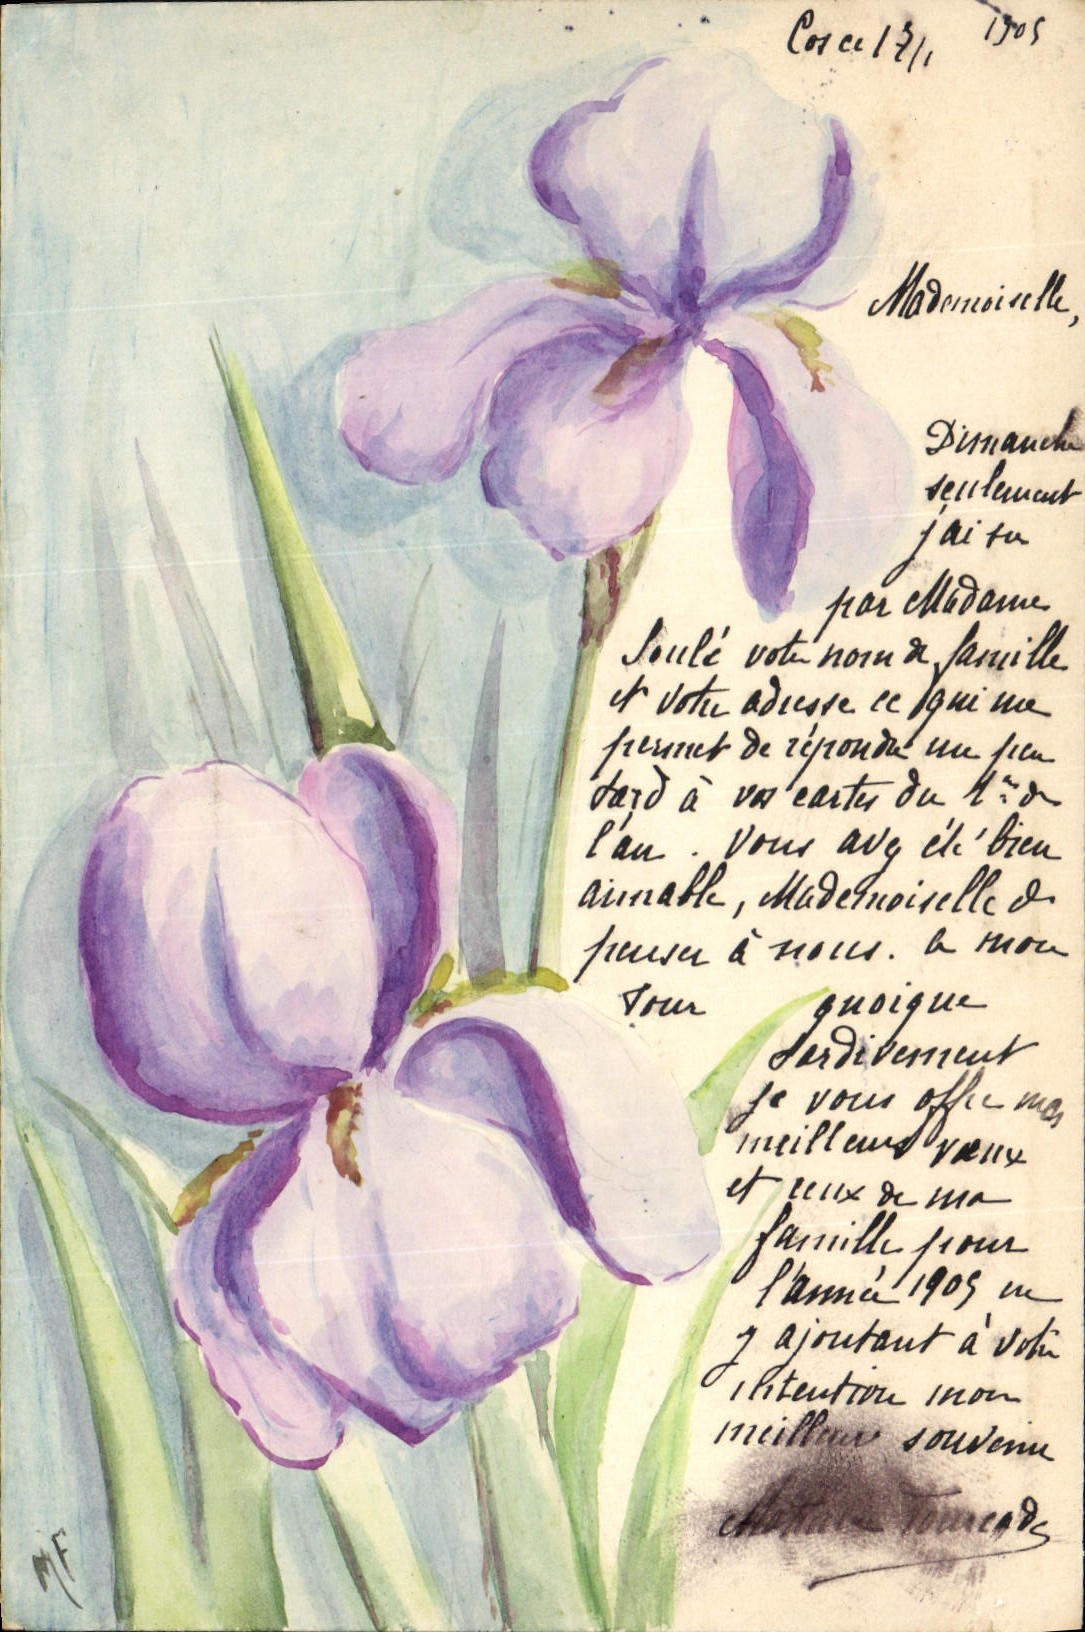 1905
Mademoiselle,
Dimanche
seulement
j'ai su
par Madame
Soulé votre nom de famille
et votre adresse ce qui me
permet de répondre un peu
tard à vos cartes du 1er de
l'an. Vous avez été bien
aimable, Mademoiselle de
penser à nous. a mon
tour quoique
tardivement
je vous offre mes
meilleurs vœux
et ceux de ma
famille pour
l'année 1905 en
y ajoutant à votre
intention mon
meilleur souvenir
MF